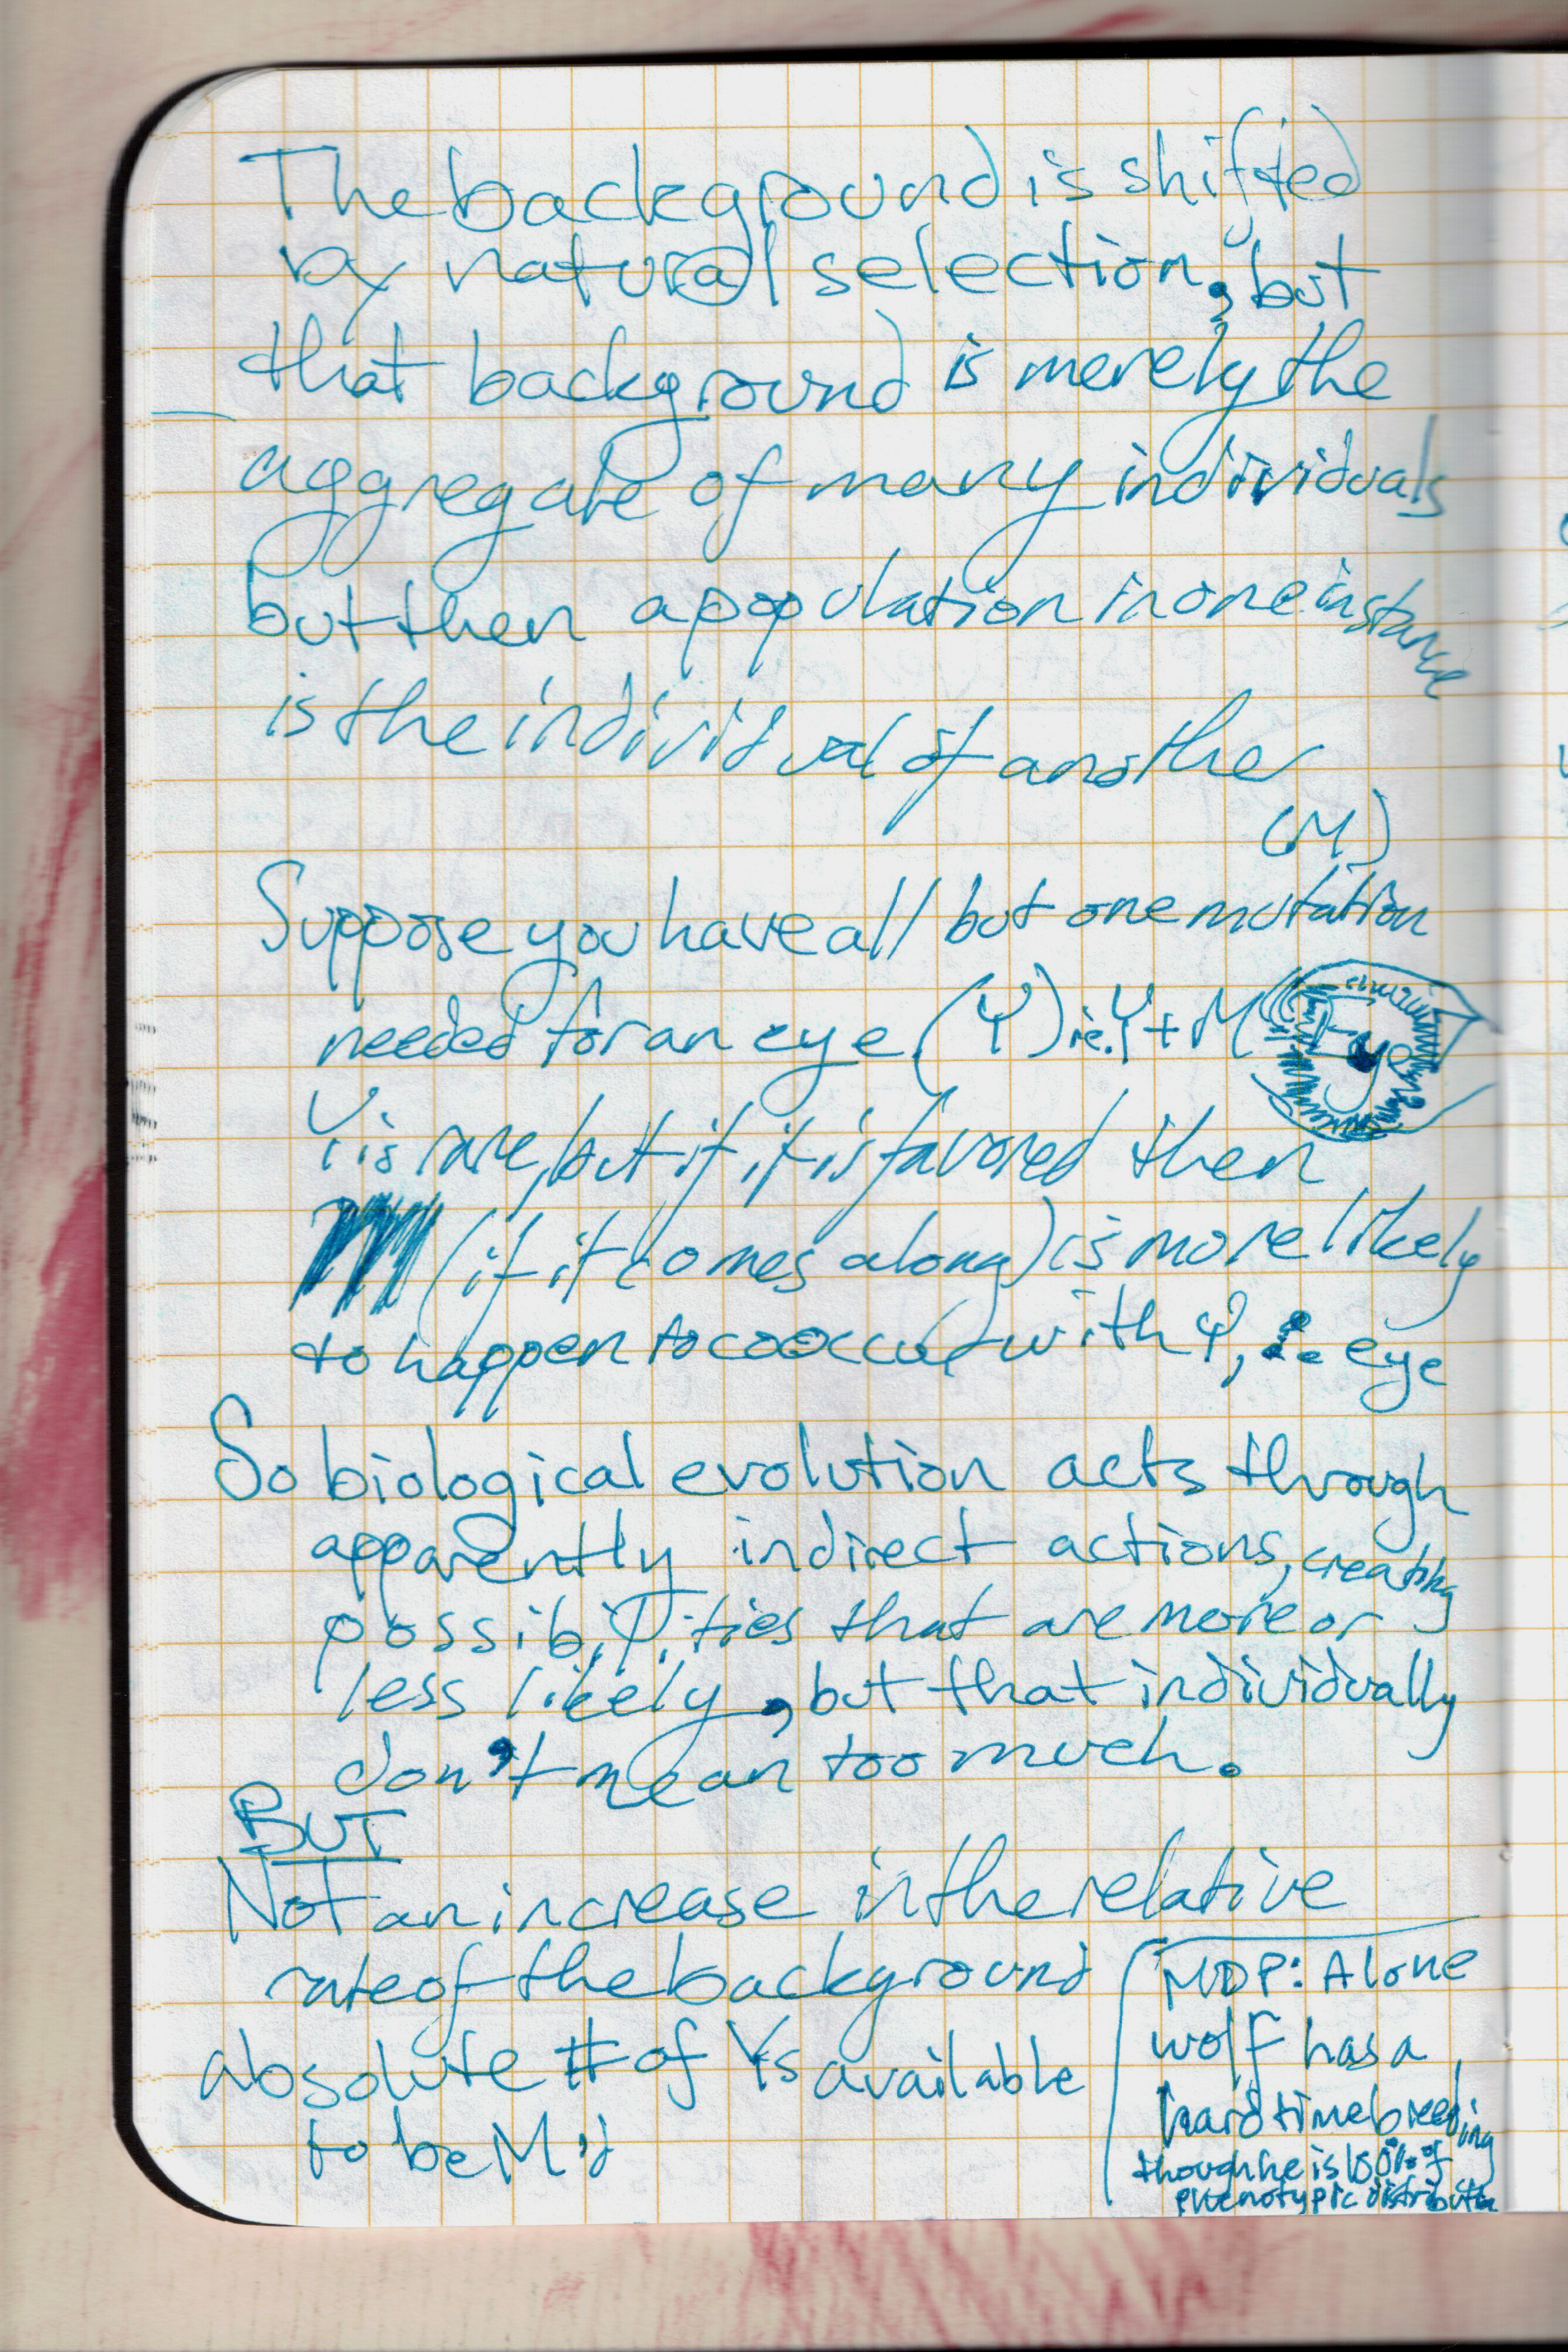 The background is shifted
by natural selection, but
that background is merely the
aggregate of many individuals
but then a population in one instance
is the individual of another
(M)
Suppose you have all but one mutation
needed for an eye (Y) ie. Y + M
Y is rare, but if it is favored then
M (if it comes along) is more likely
to happen to cooccur with Y, ∴ eye
So biological evolution acts through
apparently indirect actions, creating
possibilities that are more or
less likely, but that individually
don't mean too much.
BUT
Not an increase in the relative
rate of the background
absolute # of Ys available
to be M'd
MDP: A lone
wolf has a
hard time breeding
though he is 100% of
phenotypic distribution